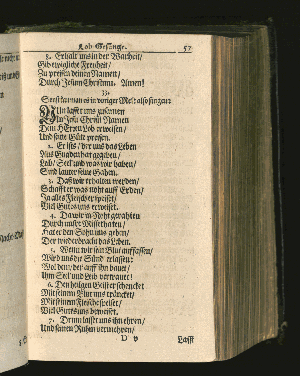 Lob-Gesänge. 57
5. Erhalt uns in der Warheit/
Gib ewigliche Freyheit/
Zu preisen deinen Namen/
Durch Jesum Christum. Amen!
33.
Sonst kan man es in voriger Mel: also singen:
NUn lasst uns zusamen
In Jesu Christi Namen
Dem HErren Lob erweisen/
Und seine Güte preisen.
2. Er ists/ der uns das Leben
Aus Gnaden hat gegeben/
Leib/ Seel und was wir haben/
Sind lauter seine Gaben.
3. Daß wir erhalten werden/
Schafft er was noht auff Erden/
Ja alles Fleisch er speiset/
Viel Gutes uns erweiset.
4. Da wir in Noht gerahten
Durch unsre Missethaten/
Hat er den Sohn uns geben/
Der wiederbracht das Leben.
5. Wenn wir sein Blut auffassen/
Wird uns die Sünd erlassen:
Wol dem/ der auff ihn bauet/
Ihm Seel und Leib vertrauet!
6. Den heilgen Geist er schencket
Mit seinem Blut uns träncket/
Mit seinem Fleische speiset/
Viel Gutes uns beweiset.
7. Drum lasst uns ihn ehren/
Und seinen Ruhm vermehren/
D v Lasst